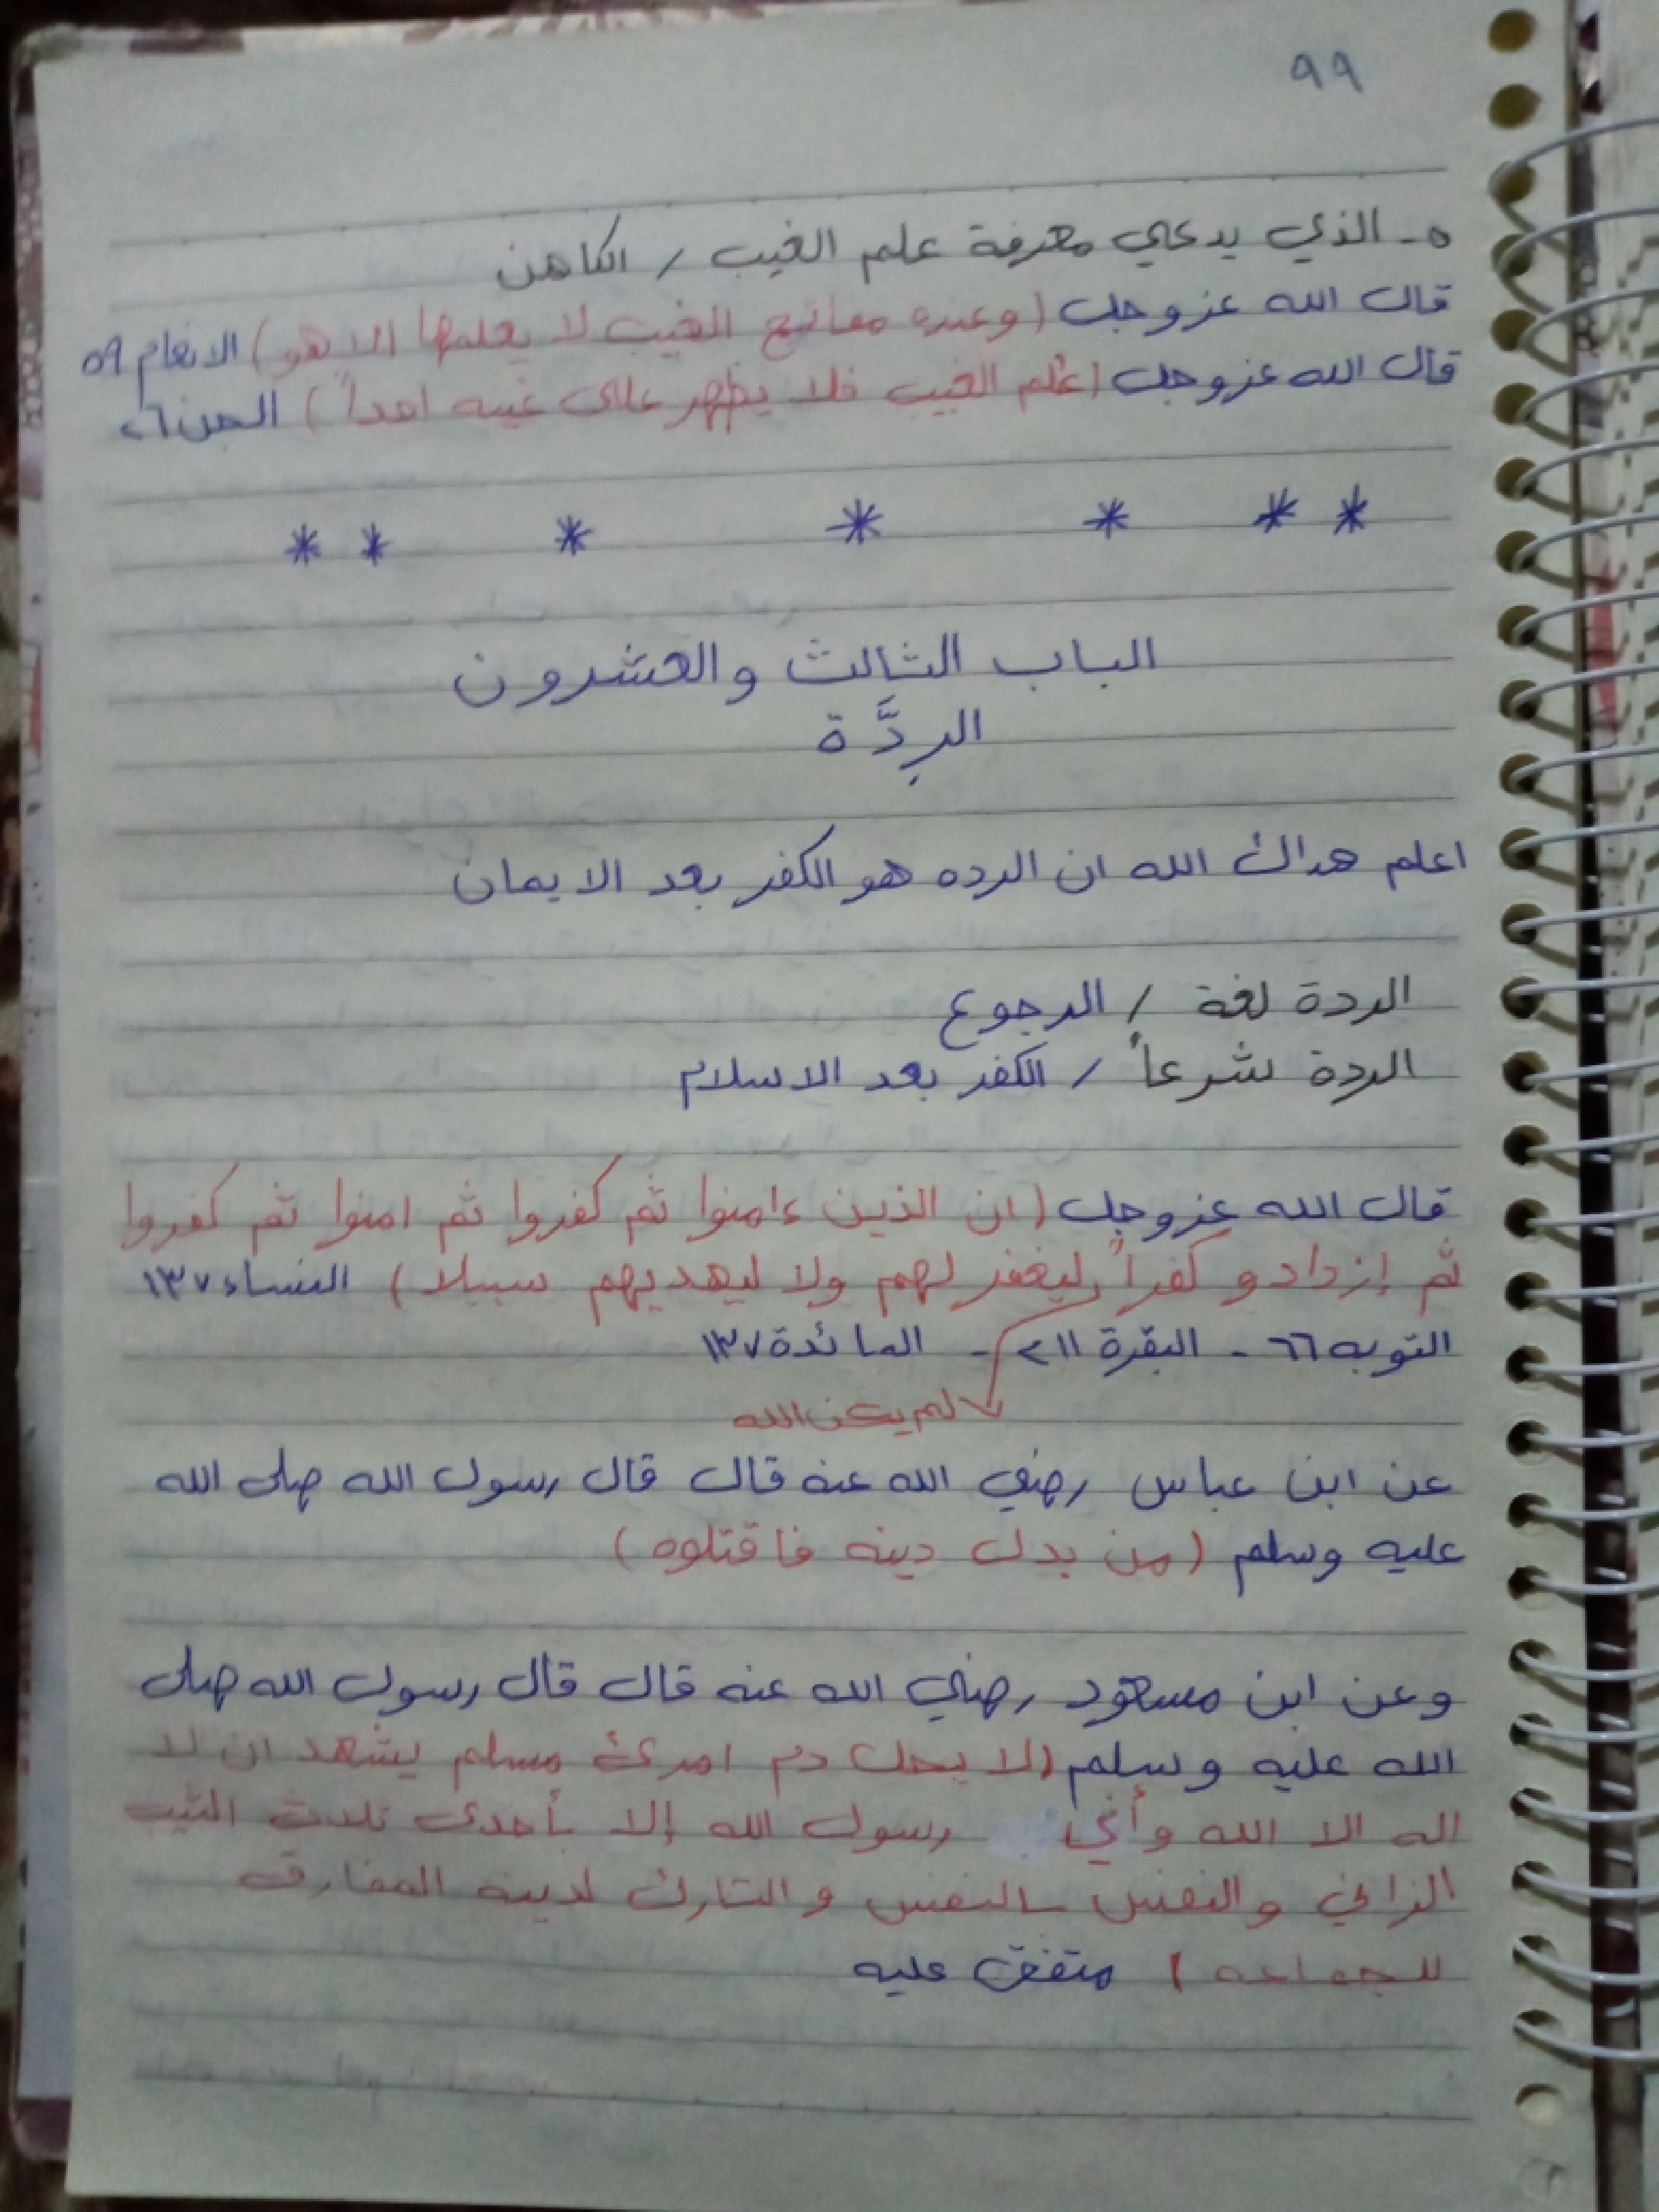 ٩٩
٥- الذي يدعي معرفة علم الغيب / الكاهن
قال الله عزوجل (وعنده مفاتح الغيب لا يعلمها الا هو) الانعام ٥٩
قال الله عزوجل (علم الغيب فلا يظهر على غيبه احداً) الجن ٢٦
* * * * * * *
الباب الثالث والعشرون
الرِدَّة
اعلم هداك الله ان الرده هو الكفر بعد الايمان
الردة لغة / الرجوع
الردة شرعاً / الكفر بعد الاسلام
قال الله عزوجل (ان الذين ءامنوا ثم كفروا ثم امنوا ثم كفروا
ثم إزدادو كفراً ليغفر لهم ولا ليهديهم سبيلا) النساء ١٣٧
التوبه ٦٦ - البقرة ٢١١ - المائدة ١٣٧
لم يكن الله
عن ابن عباس رضي الله عنه قال قال رسول الله صلى الله
عليه وسلم (من بدل دينه فاقتلوه)
وعن ابن مسعود رضي الله عنه قال قال رسول الله صلى
الله عليه وسلم (لا يحل دم امرئ مسلم يشهد ان لا
اله الا الله وأني رسول الله إلا بأحدى ثلاث الثيب
الزاني والنفس بالنفس والتارك لدينه المفارق
للجماعه) متفق عليه